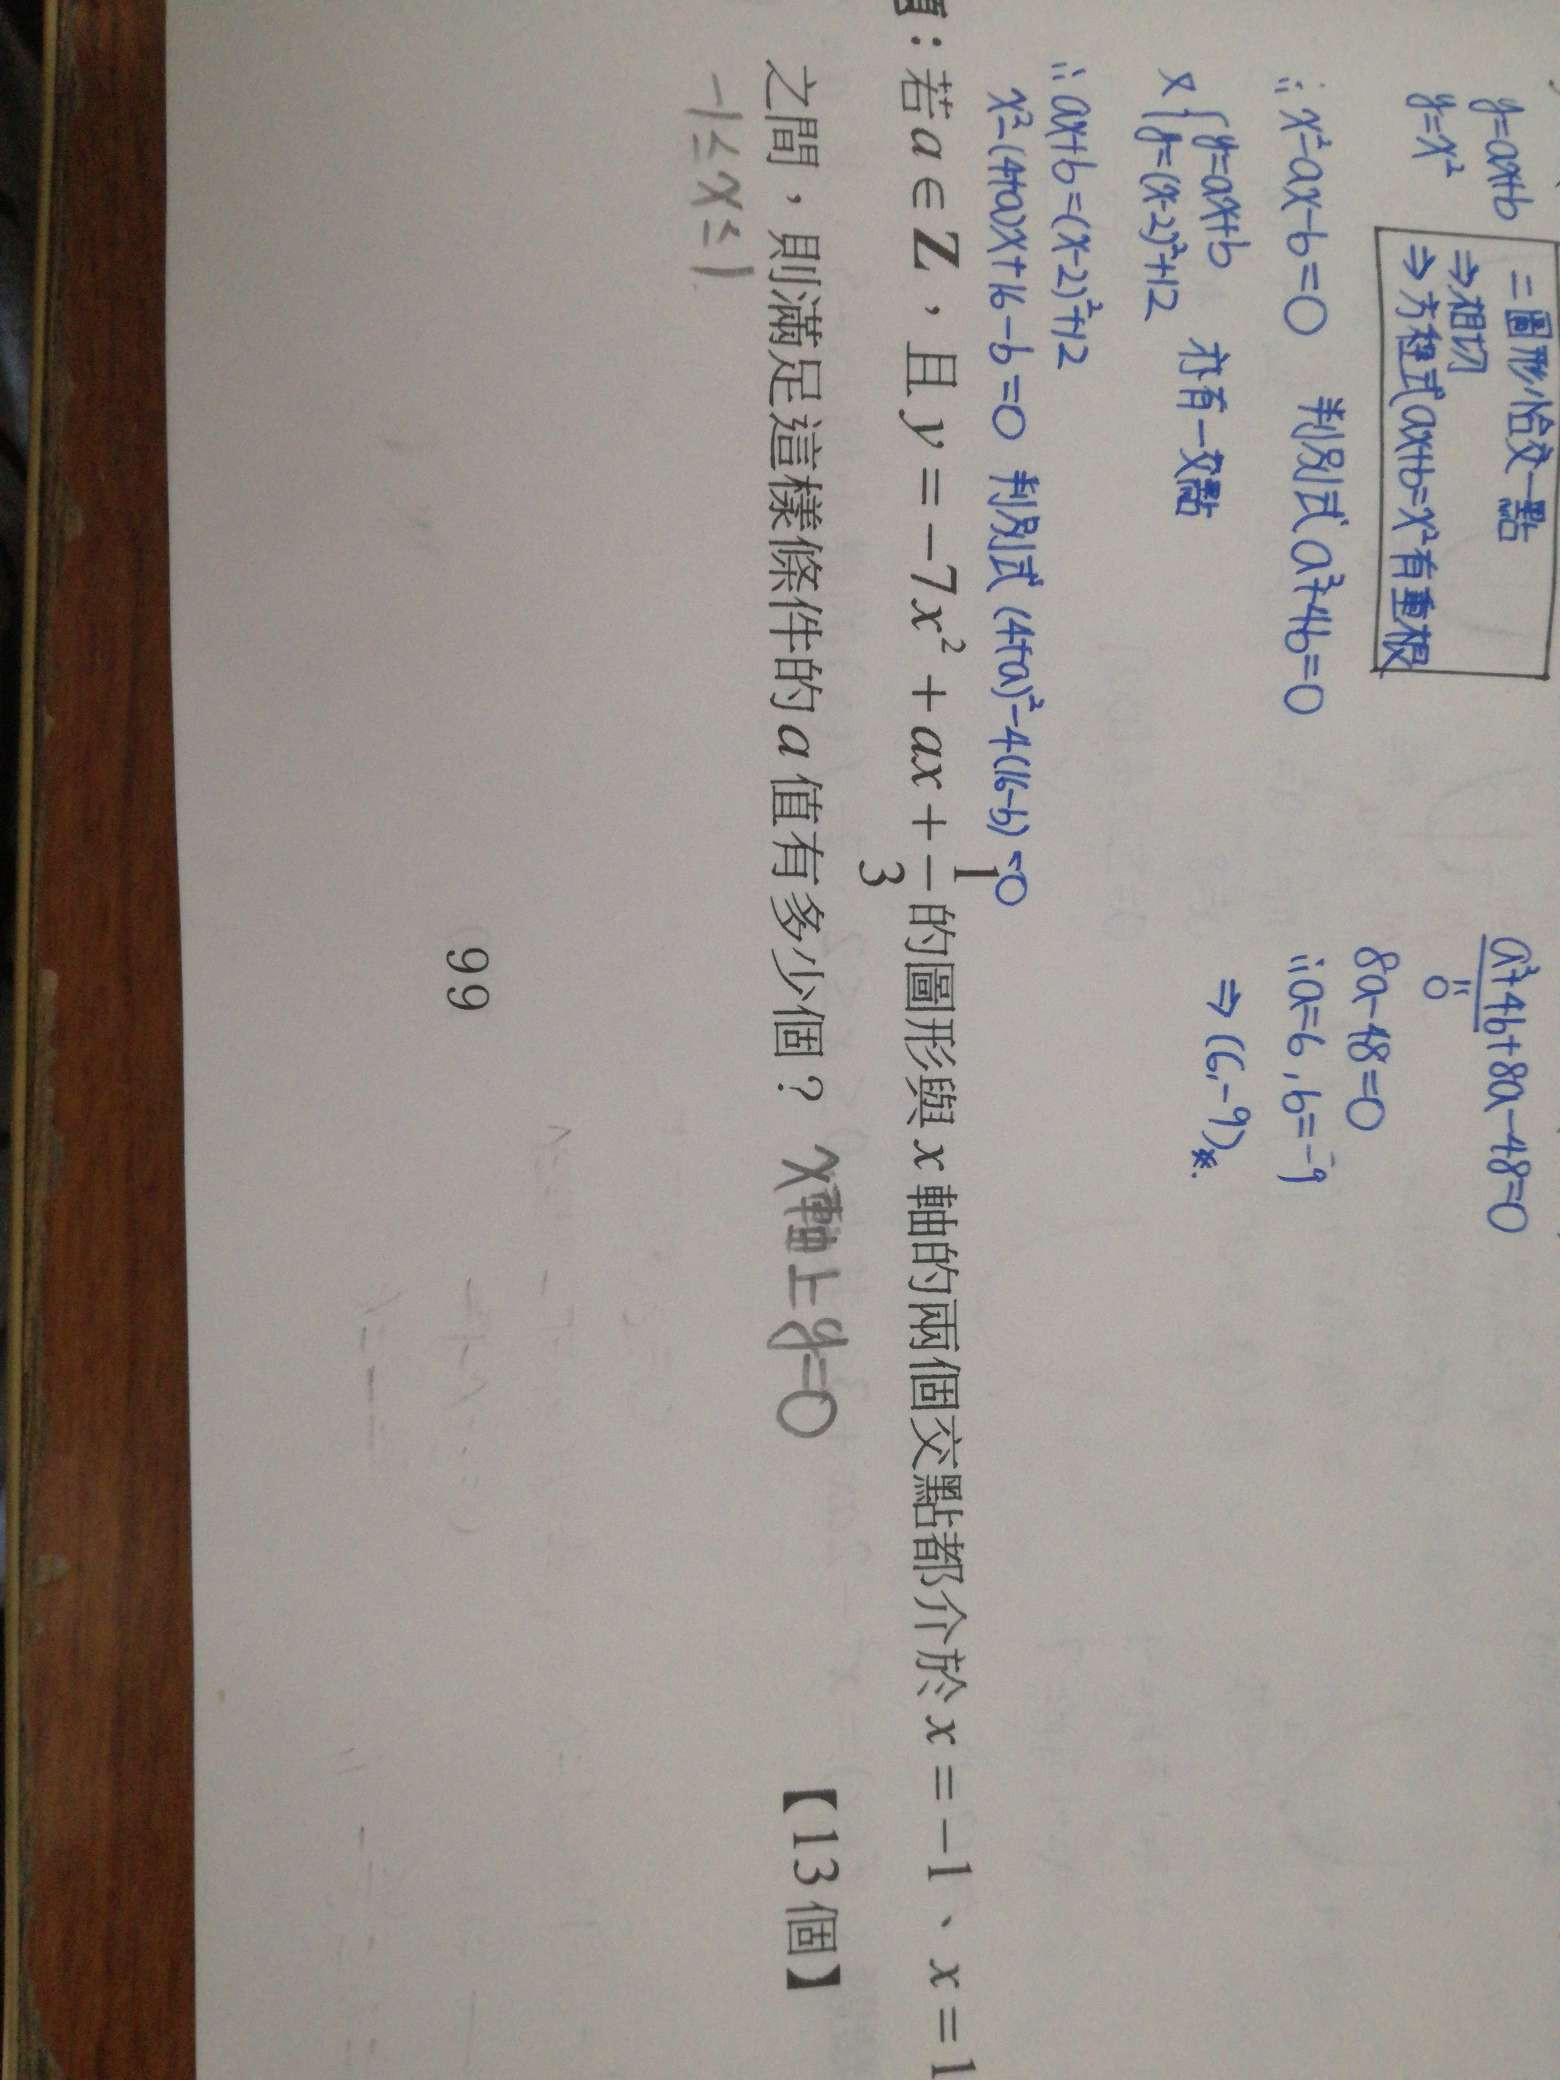 y=ax+b
y=x²
=圖形恰交一點
⇒相切
⇒方程式ax+b=x²有重根
a²+4b+8a-48=0
0
∴x²-ax-b=0 判別式a²+4b=0
8a-48=0
∴a=6,b=-9
又{y=ax+b
y=(x-2)²+12 亦有一交點
⇒(6,-9)※.
∴ax+b=(x-2)²+12
x²-(4+a)x+16-b=0 判別式(4+a)²-4(16-b)=0
題:若a∈Z,且y=-7x²+ax+1/3的圖形與x軸的兩個交點都介於x=-1、x=1
之間,則滿足這樣條件的a值有多少個? x軸上y=0 【13個】
-1≤x≤1
99